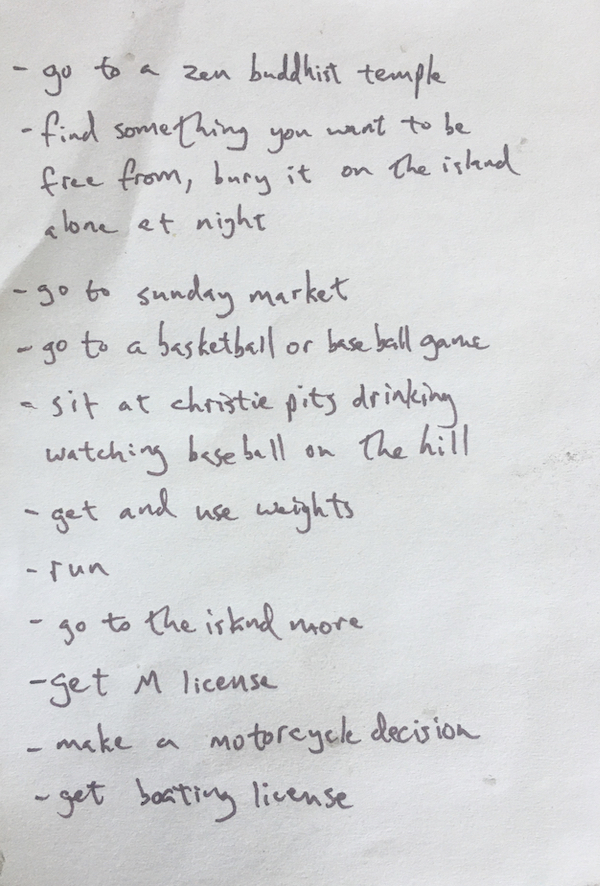 - go to a zen buddhist temple
- find something you want to be
free from, bury it on the island
alone at night
- go to sunday market
- go to a basketball or baseball game
- sit at christie pits drinking
watching baseball on the hill
- get and use weights
- run
- go to the island more
- get M license
- make a motorcycle decision
- get boating license